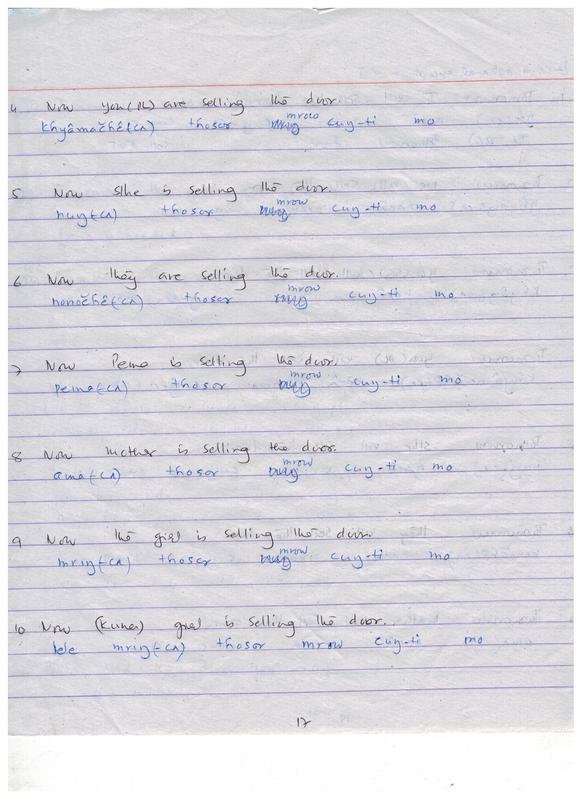 4 Now you(PL) are selling the door.
khyâmačhê(-cʌ) thosor mrow cuŋ-ti mo
5 Now s/he is selling the door.
nuŋ(-cʌ) thosor mrow cuŋ-ti mo
6 Now they are selling the door.
nonočhê(-cʌ) thosor mrow cuŋ-ti mo
7 Now Pema is selling the door.
pema(-cʌ) thosor mrow cuŋ-ti mo
8 Now mother is selling the door.
ama(-cʌ) thosor mrow cuŋ-ti mo
9 Now the girl is selling the door.
mrıŋ(-cʌ) thosor mrow cuŋ-ti mo
10 Now girl is selling the door.
mrıŋ(-cʌ) thosor mrow cuŋ-ti mo
17